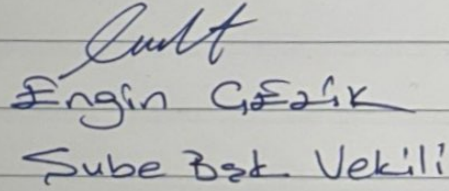 Engin GEZİK
Şube Bşk Vekili